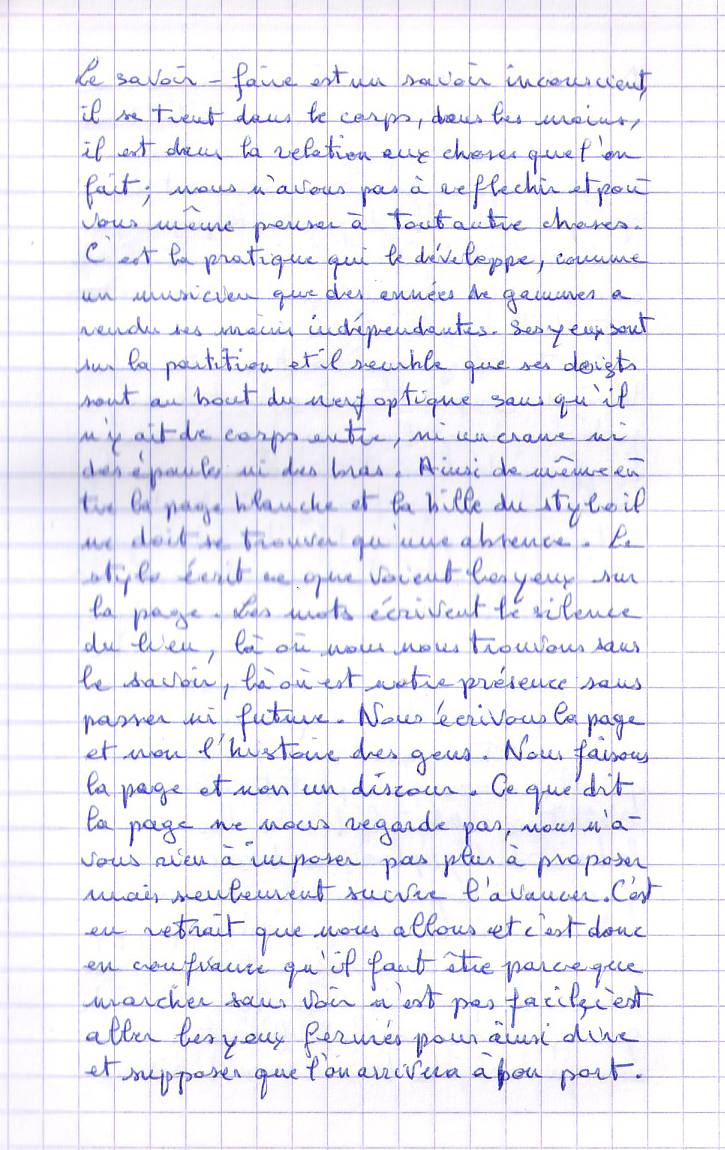 Le savoir-faire est un savoir inconscient,
il se tient dans le corps, dans les mains,
il est dans la relation aux choses que l'on
fait; nous n'avons pas à reflechir et pou-
vons même penser à tout autre choses.
C'est la pratique qui le développe, comme
un musicien que des années de gammes a
rendu ses mains indépendantes. Ses yeux sont
sur la partition et il semble que ses doigts
sont au bout du nerf optique sans qu'il
n'y ait de corps entre, ni un crane ni
des épaules ni des bras. Ainsi de même en
tre la page blanche et la bille du stylo il
ne doit se trouver qu'une absence. Le
stylo écrit ce que voient les yeux sur
la page. Les mots écrivent le silence
du lieu, là où nous nous trouvons sans
le savoir, là où est notre présence sans
passer ni future. Nous écrivons la page
et non l'histoire des gens. Nous faisons
la page et non un discour. Ce que dit
la page ne nous regarde pas, nous n'a-
vons rien à imposer pas plus à proposer
mais seulement suivre l'avancer. C'est
en retrait que nous allons et c'est donc
en confiance qu'il faut être parce que
marcher sans voir n'est pas facile, c'est
aller les yeux fermés pour ainsi dire
et supposer que l'on arrivera à bon port.